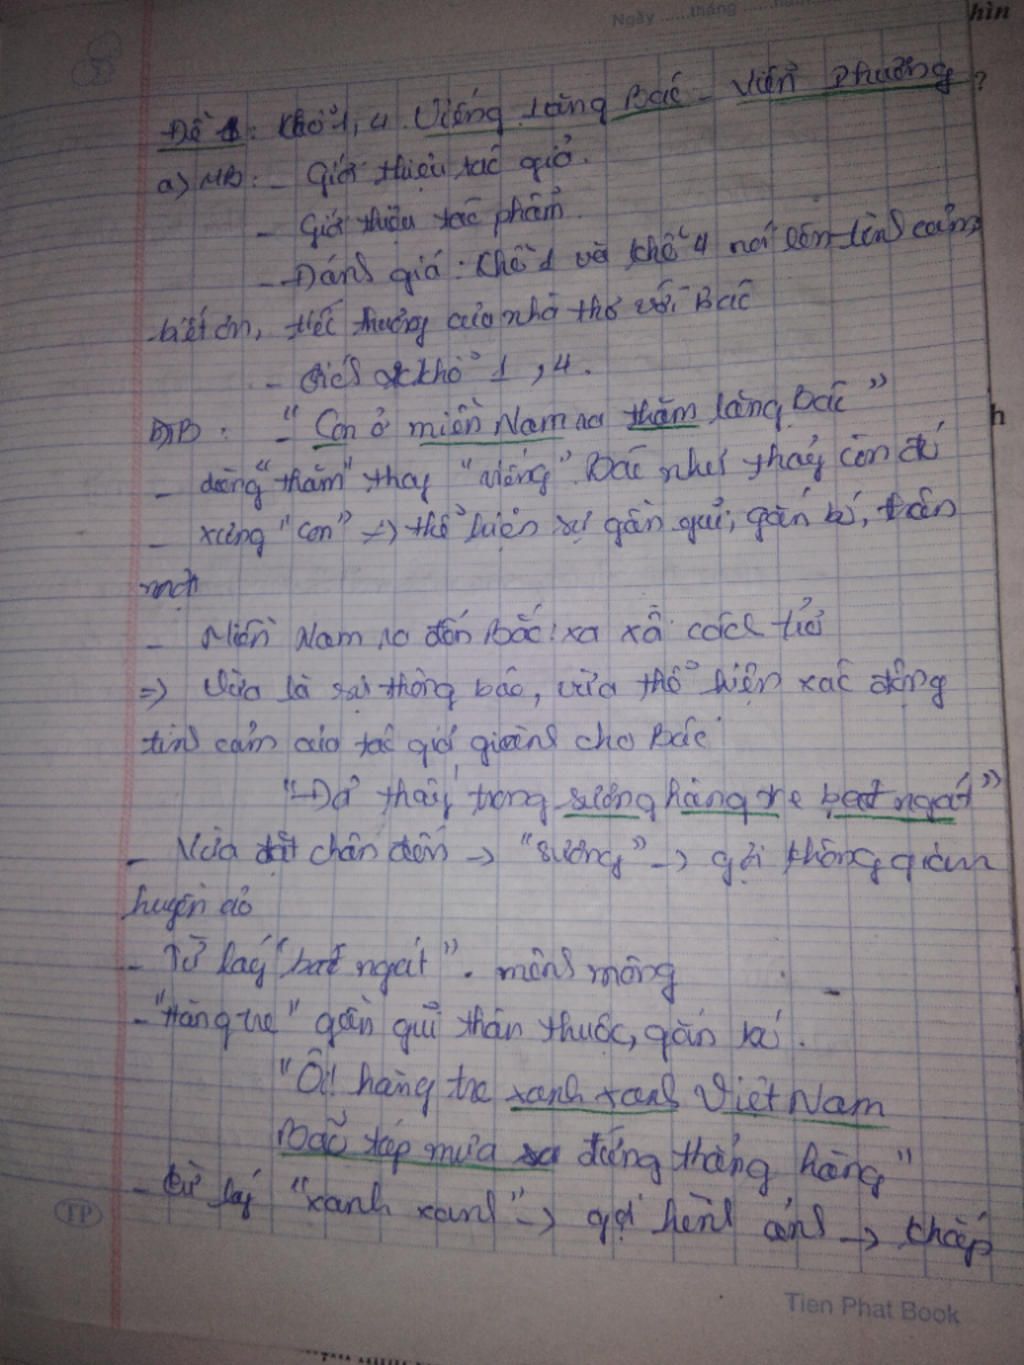 Ngày ......tháng ......năm
hìn
Đề 1: Khổ 1, 4. Viếng Lăng Bác - Viễn Phương?
a) MB: - Giới thiệu tác giả.
- Giới thiệu tác phẩm.
- Đánh giá: Khổ 1 và khổ 4 nói lên tình cảm,
biết ơn, tiếc thương của nhà thơ với Bác
- khổ 1, 4.
B) TB: - "Con ở miền Nam ra thăm lăng Bác"
h
- dùng "thăm" thay "viếng" Bác như thấy còn đó
- xưng "con" => thể hiện sự gần gũi, gắn bó, thân
mật
- Miền Nam ra đến Bắc: xa xôi cách trở
=> Vừa là sự thông báo, vừa thể hiện xúc động
tình cảm của tác giả giành cho Bác
"Đã thấy trong sương hàng tre bát ngát"
- Vừa đặt chân đến -> "sương" -> gợi không gian
huyền ảo
- Từ láy "bát ngát". mênh mông
- "Hàng tre" gần gũi thân thuộc, gắn bó.
"Ôi! hàng tre xanh xanh Việt Nam
Bão táp mưa sa đứng thẳng hàng"
- từ láy "xanh xanh" -> gợi hình ảnh -> khắp
TP
Tien Phat Book